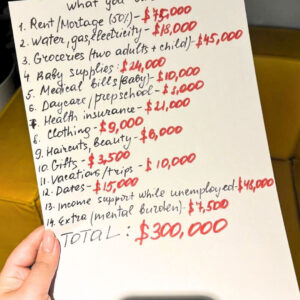 what you
1. Rent/Mortage (50%) - $75,000
2. Water, gas, electricity - $18,000
3. Groceries (two adults + child) - $45,000
4. Baby supplies - $24,000
5. Medical bills (baby) - $10,000
6. Daycare/prepschool - $3,000
7. Health insurance - $21,000
8. Clothing - $9,000
9. Haircuts, Beauty - $6,000
10. Gifts - $3,500
11. Vacations/trips - $10,000
12. Dates - $15,000
13. Income support while unemployed - $48,000
14. Extra (mental burden) - $7,500
TOTAL: $300,000